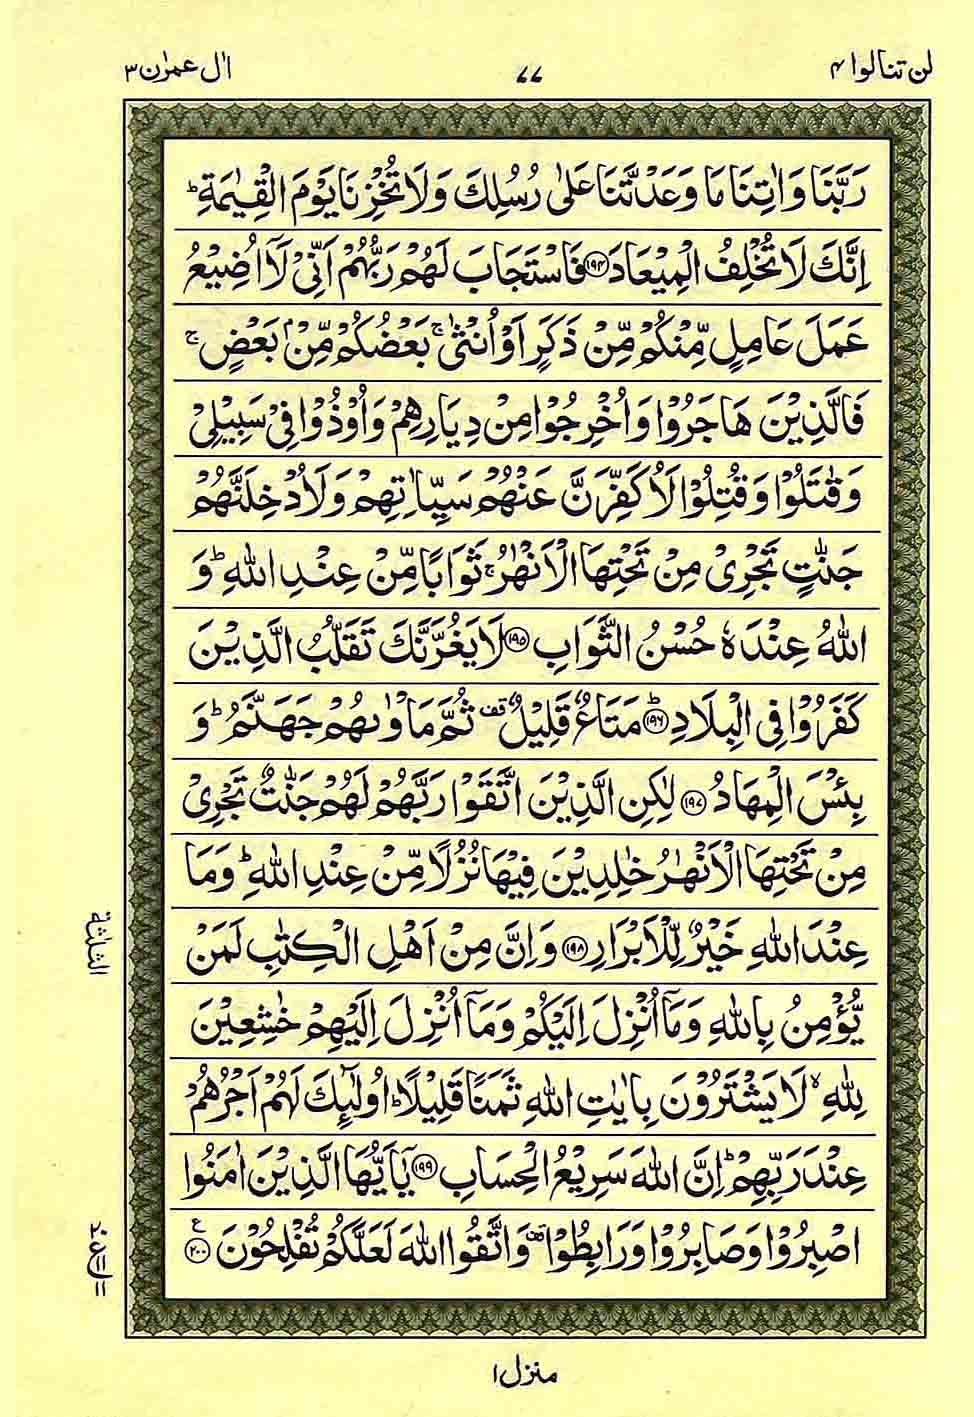 لن تنالوا ۴
۷۷
اٰل عمرٰن ۳
رَبَّنَا وَاٰتِنَا مَا وَعَدْتَّنَا عَلٰى رُسُلِكَ وَلَا تُخْزِنَا يَوْمَ الْقِيٰمَةِ ؕ
اِنَّكَ لَا تُخْلِفُ الْمِيْعَادَ ﴿۱۹۴﴾ فَاسْتَجَابَ لَهُمْ رَبُّهُمْ اَنِّىْ لَاۤ اُضِيْعُ
عَمَلَ عَامِلٍ مِّنْكُمْ مِّنْ ذَكَرٍ اَوْ اُنْثٰى ۚ بَعْضُكُمْ مِّنْۢ بَعْضٍ ۚ
فَالَّذِيْنَ هَاجَرُوْا وَاُخْرِجُوْا مِنْ دِيَارِهِمْ وَاُوْذُوْا فِىْ سَبِيْلِىْ
وَقٰتَلُوْا وَقُتِلُوْا لَاُكَفِّرَنَّ عَنْهُمْ سَيِّاٰتِهِمْ وَلَاُدْخِلَنَّهُمْ
جَنّٰتٍ تَجْرِىْ مِنْ تَحْتِهَا الْاَنْهٰرُ ۚ ثَوَابًا مِّنْ عِنْدِ اللّٰهِ ؕ وَ
اللّٰهُ عِنْدَهٗ حُسْنُ الثَّوَابِ ﴿۱۹۵﴾ لَا يَغُرَّنَّكَ تَقَلُّبُ الَّذِيْنَ
كَفَرُوْا فِى الْبِلَادِ ؕ ﴿۱۹۶﴾ مَتَاعٌ قَلِيْلٌ قف ثُمَّ مَاْوٰىهُمْ جَهَنَّمُ ؕ وَ
بِئْسَ الْمِهَادُ ﴿۱۹۷﴾ لٰكِنِ الَّذِيْنَ اتَّقَوْا رَبَّهُمْ لَهُمْ جَنّٰتٌ تَجْرِىْ
مِنْ تَحْتِهَا الْاَنْهٰرُ خٰلِدِيْنَ فِيْهَا نُزُلًا مِّنْ عِنْدِ اللّٰهِ ؕ وَمَا
عِنْدَ اللّٰهِ خَيْرٌ لِّلْاَبْرَارِ ﴿۱۹۸﴾ وَاِنَّ مِنْ اَهْلِ الْكِتٰبِ لَمَنْ
يُّؤْمِنُ بِاللّٰهِ وَمَاۤ اُنْزِلَ اِلَيْكُمْ وَمَاۤ اُنْزِلَ اِلَيْهِمْ خٰشِعِيْنَ
لِلّٰهِ ۙ لَا يَشْتَرُوْنَ بِاٰيٰتِ اللّٰهِ ثَمَنًا قَلِيْلًا ؕ اُولٰٓئِكَ لَهُمْ اَجْرُهُمْ
عِنْدَ رَبِّهِمْ ؕ اِنَّ اللّٰهَ سَرِيْعُ الْحِسَابِ ﴿۱۹۹﴾ يٰۤاَيُّهَا الَّذِيْنَ اٰمَنُوا
اصْبِرُوْا وَصَابِرُوْا وَرَابِطُوْا قف وَاتَّقُوا اللّٰهَ لَعَلَّكُمْ تُفْلِحُوْنَ ع ﴿۲۰۰﴾
الثلٰثة
منزل ۱